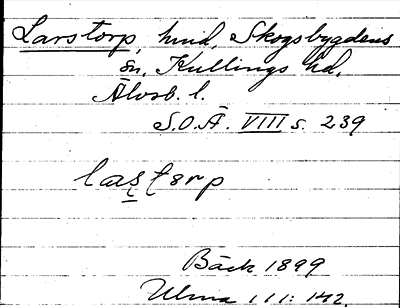 Larstorp, hmd, Skogsbygdens
sn, Kullings hd,
Älvsb. l.
S.O.Ä. VIII s. 239
lastorp
Bäck 1899
Ulma 111: 142.